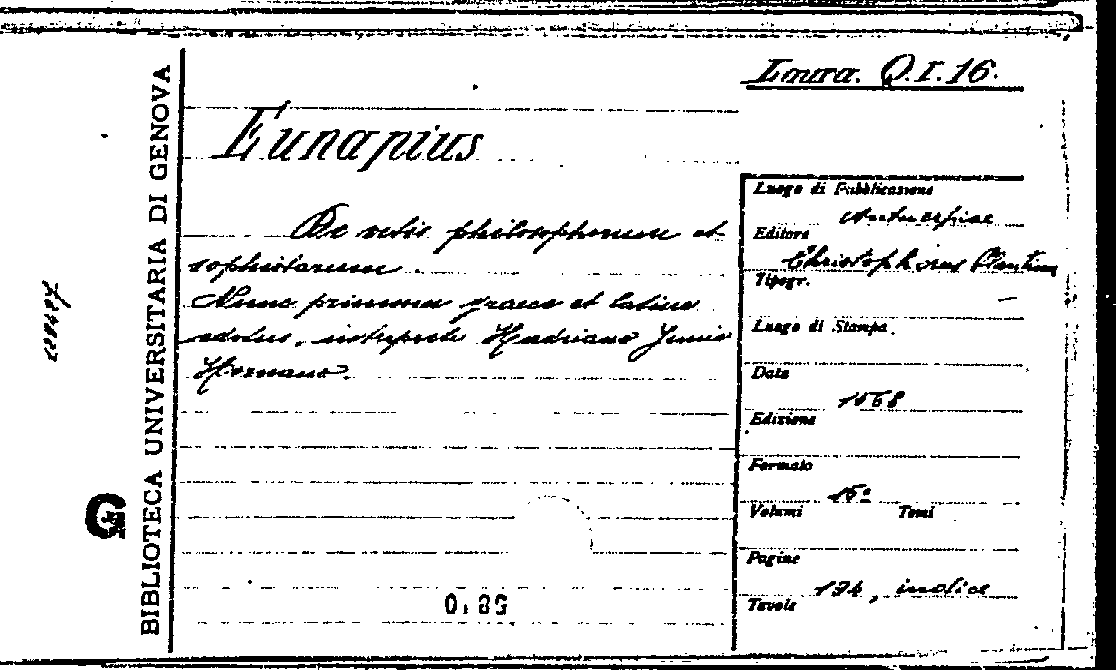 Loura. Q.I.16.
Eunapius
De vitis philosophorum et
sophistarum
Nunc primum graece et latine
editus, interprete Hadriano Junio
Hornano.
Luogo di Pubblicazione
Antuerpiae
Editore
Christophorus Plantinus
Tipogr.
Luogo di Stampa.
Data
1568
Edizione
Formato
Volumi Tomi
Pagine
194, indice
Tavole
BIBLIOTECA UNIVERSITARIA DI GENOVA